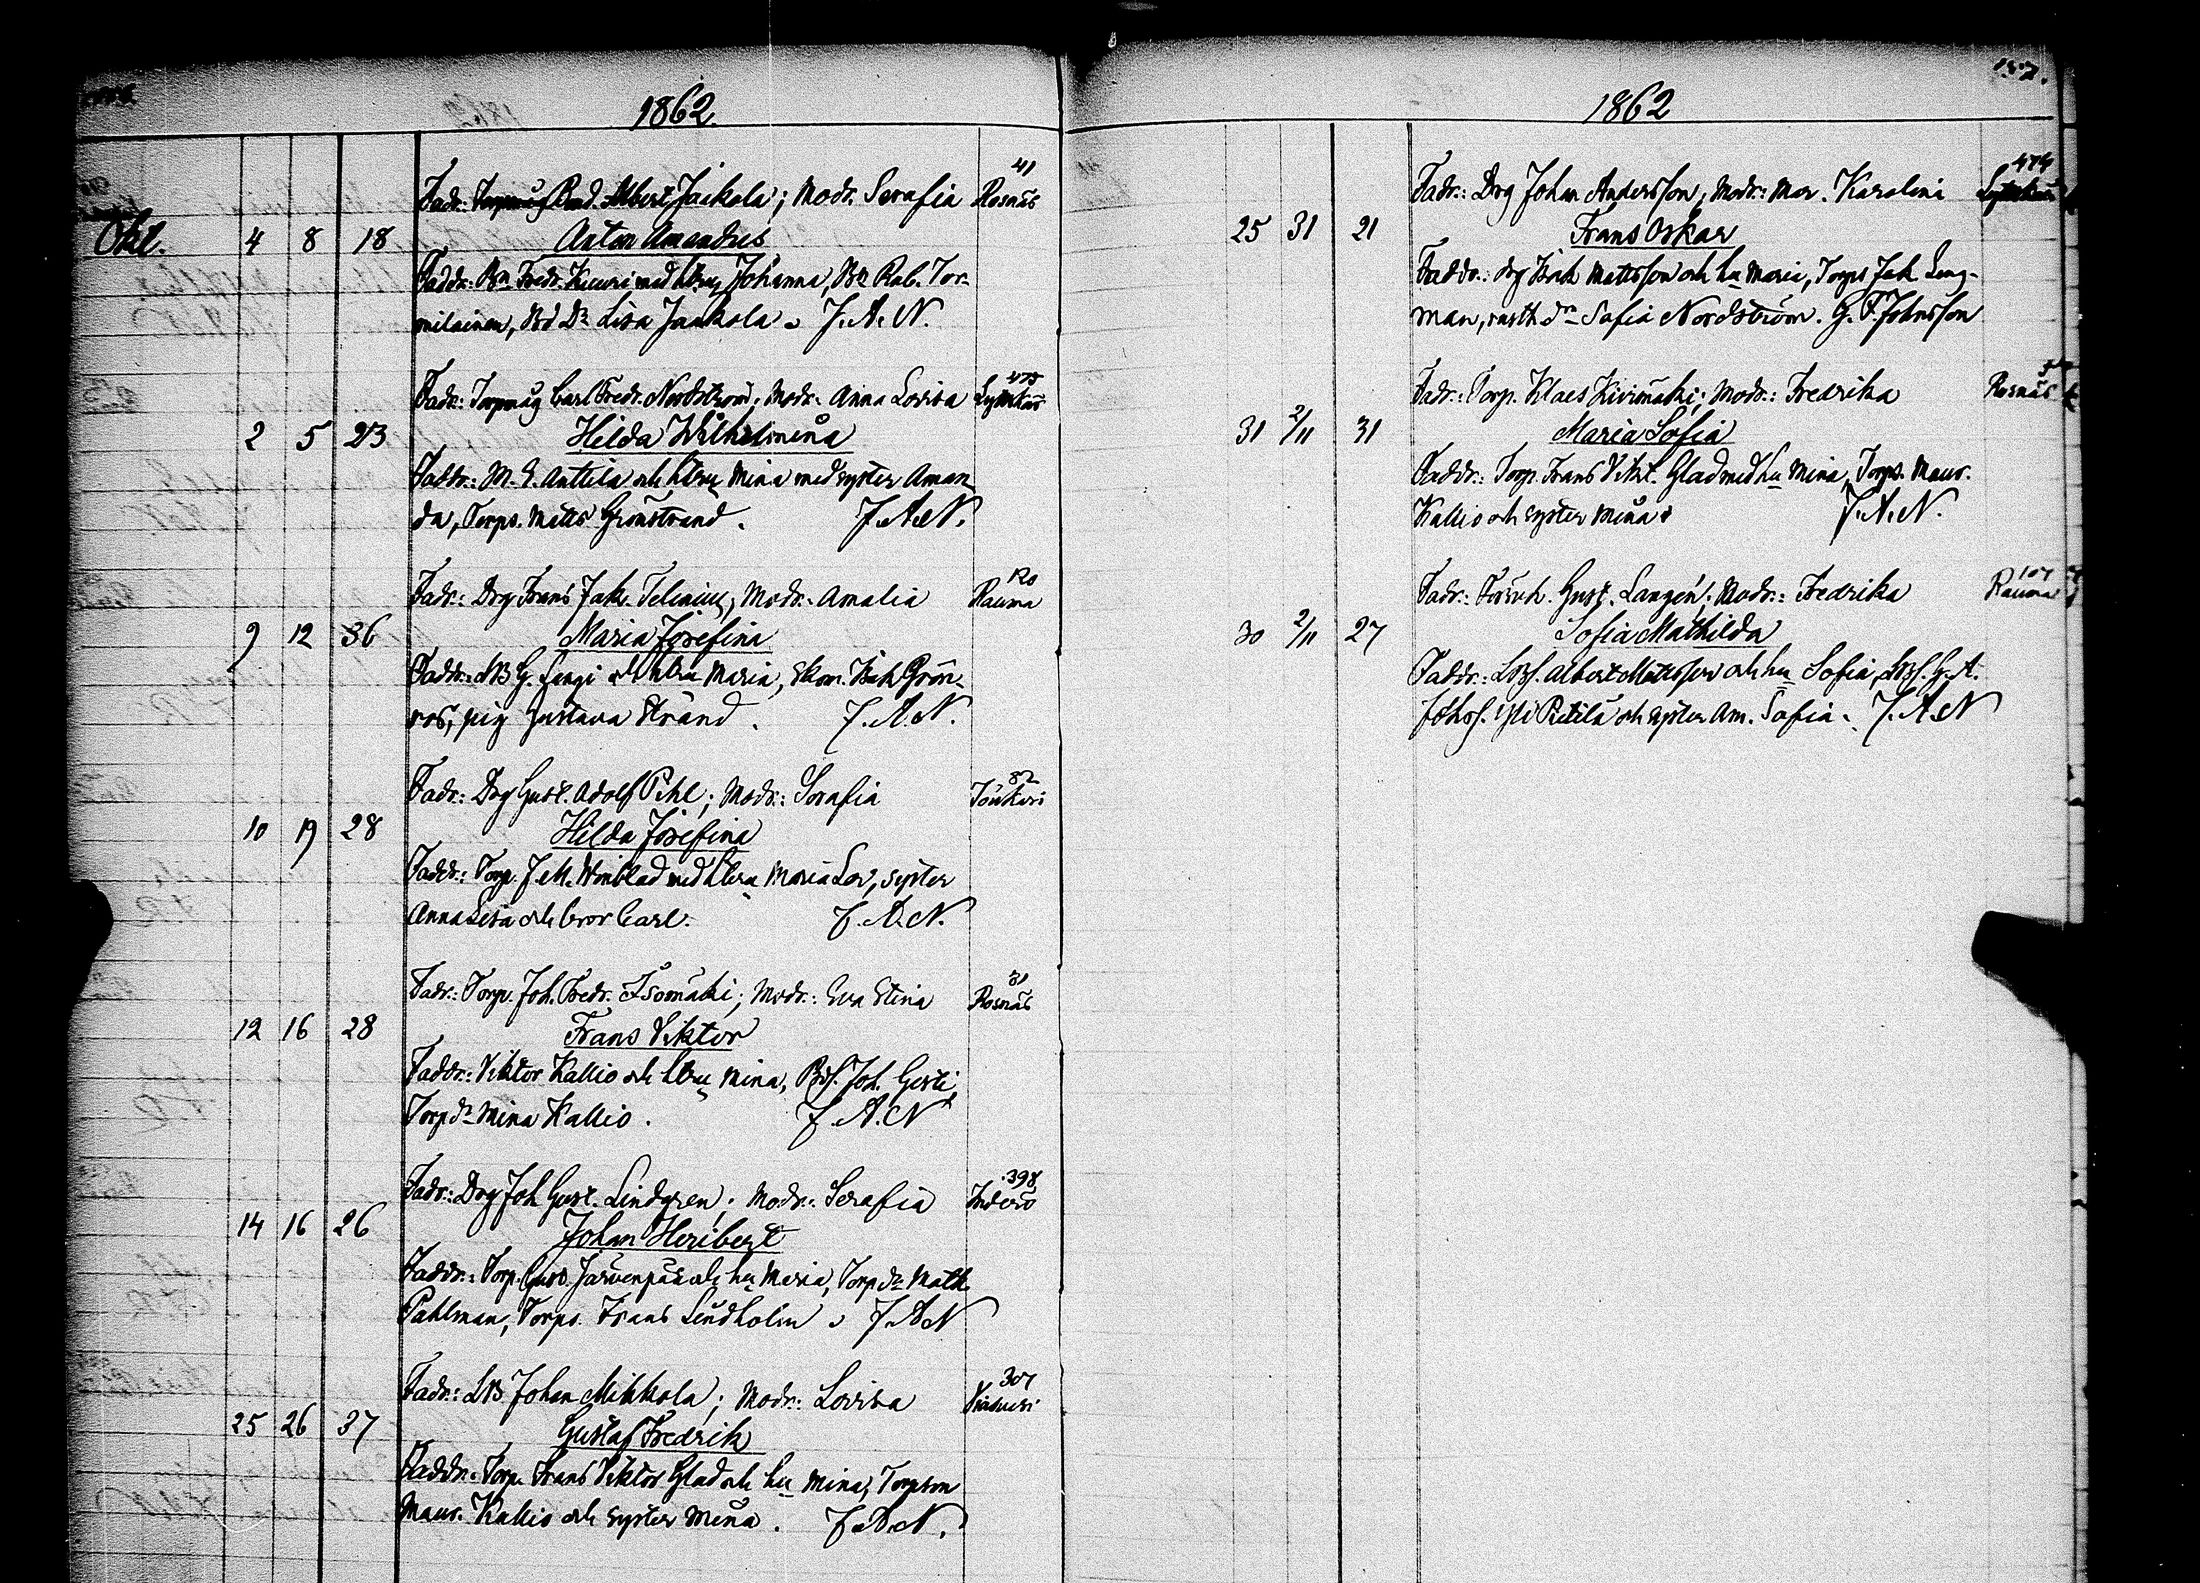 1862.
41
Fadr: Torpmåg Bend. Albert Jaakola; Modr. Serafia Rosnäs
Okt. 4 8 18 Anton Amandus
Faddr: Bn Fredr. Kuuri med hu Johanna, Bn Rob. Tor-
milainen, Bd Dr Lisa Jaakola. J. A. N.
475
Fadr: Torpmåg Carl Fredr. Nordström; Modr: Anna Lovisa
2 5 23 Hilda Wilhelmina
Faddr: M. E. Anttila och hu Mina med syster Aman
da, Torps. Matts Grönstrand. J. A. N.
120
Fadr: Drg Frans Jak. Telenius; Modr: Amalia Rauma
9 12 36 Maria Josefina
Faddr: G. Langi och hu Maria, Skom. Isak Grön-
ros, pig Gustava Strand. J. A. N.
82
Fadr: Drg Gust. Adolf Pihl; Modr: Serafia
10 19 28 Hilda Josefina
Faddr: Torp. J. M. Winblad med hu Maria Lov, syster
Anna Lisa och bror Carl. J. A. N.
31
Fadr: Torp. Joh. Fredr. Isomäki; Modr: Eva Stina Rosnäs
12 16 28 Frans Viktor
Faddr: Viktor Kallio och hu Mina, Joh. Gerli
Torp dr Mina Kallio. J. A. N
398
Fadr: Drg Joh Gust. Lindgren; Modr: Serafia Inderö
14 16 26 Johan Heribert
Faddr: Torp. Gust. Järvenpää och hu Maria, Torp dr Math.
Pahlman, Torps. Frans Lindholm. J. A. N
307
Fadr: LB Johan Mikkola; Modr: Lovisa
25 26 37 Gustaf Fredrik
Faddr: Torp. Frans Viktor Glad och hu Mina, Torpson
Maur. Kallio och syster Mina. J. A. N.
157.
1862
474
Fadr: Drg Johan Andersson; Modr: Mar. Karolina
25 31 21 Frans Oskar
Faddr: drg Isak Mattsson och hu Maria, Torps Jak Leng-
man, dr Sofia Nordström. G. F. Johnsson
Fadr: Torp. Klaes Kivimäki; Modr: Fredrika Rosnäs
31 2/11 31 Maria Sofia
Faddr: Torp. Frans Vikt. Glad med hu Mina, Torps. Maur.
Kallio och syster Mina. J. A. N.
107
Fadr: Gust. Langén; Modr: Fredrika Rauma
30 2/11 27 Sofia Mathilda
Faddr: Albert Mattsson och hu Sofia, G. A.
Pietilä och syster Am. Sofia. J. A. N